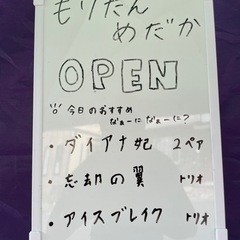 もりたん
めだか
OPEN
今日のおすすめ
なぁーに なぁーに?
・ダイアナ妃 2ペア
・忘却の翼 トリオ
・アイスブレイク トリオ